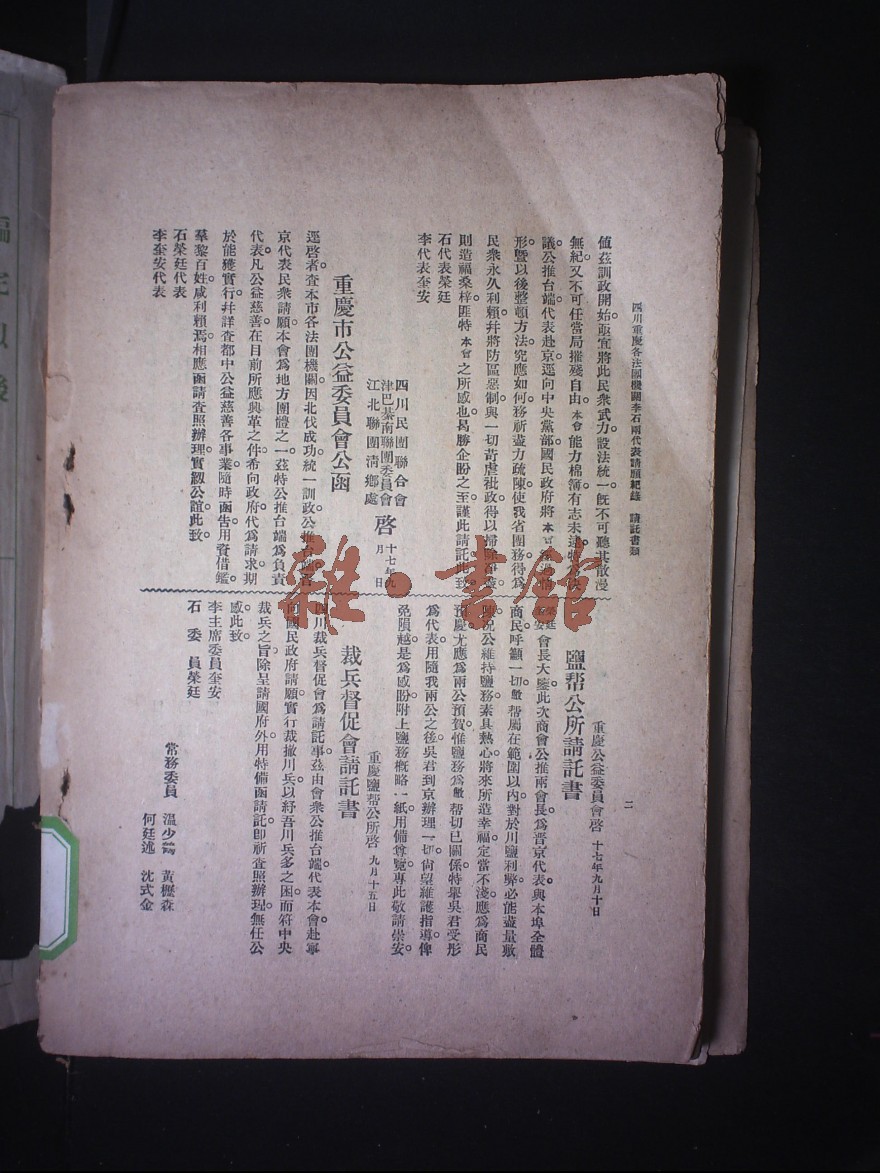 四川重慶各法團機關李石兩代表請願紀錄　請託書類
二
値茲訓政開始亟宜將此民衆武力設法統一旣不可聽其散漫
無紀又不可任當局摧殘自由本會能力棉薄有志未逮特
議公推台端代表赴京逕向中央黨部國民政府將本
形暨以後整頓方法究應如何務祈盡力疏陳使我省團務得爲
民衆永久利賴幷將防區惡制與一切苛虐秕政得以掃
則造福桑梓匪特本會之所感也曷勝企盼之至謹此請託此致
石代表榮廷
李代表奎安
四川民團聯合會
津巴綦南聯團委員會
江北聯團清鄉處
啓
十七年九月　日
重慶市公益委員會公函
逕啓者查本市各法團機關因北伐成功統一訓政公推台端晉
京代表民衆請願本會爲地方團體之一茲特公推台端爲負責
代表凡公益慈善在目前所應興革之件希向政府代爲請求期
於能獲實行幷詳查都中公益慈善各事業隨時函告用資借鑑
羣黎百姓咸利賴焉相應函請查照辦理實紉公誼此致
石榮廷代表
李奎安代表
重慶公益委員會啓　十七年九月十日
鹽帮公所請託書
會長大鑒此次商會公推兩會長爲晋京代表與本埠全體
商民呼籲一切敝帮屬在範圍以內對於川鹽利弊必能盡量敷
陳况公維持鹽務素具熱心將來所造幸福定當不淺應爲商民
預慶尤應爲兩公預賀惟鹽務爲敝帮切已關係特舉吳君受彤
爲代表用隨我兩公之後吳君到京辦理一切尙望維護指導俾
免隕越是爲感盼附上鹽務槪略一紙用備尊覽專此敬請崇安
重慶鹽帮公所啓　九月十五日
裁兵督促會請託書
四川裁兵督促會爲請託事茲由會衆公推台端代表本會赴寧
向國民政府請願實行裁撤川兵以紓吾川兵多之困而符中央
裁兵之旨除呈請國府外用特備函請託即祈查照辦理無任公
感此致
李主席委員奎安
石委員榮廷
常務委員　溫少鶴　黃櫪森
何廷述　沈式金
雜·書館